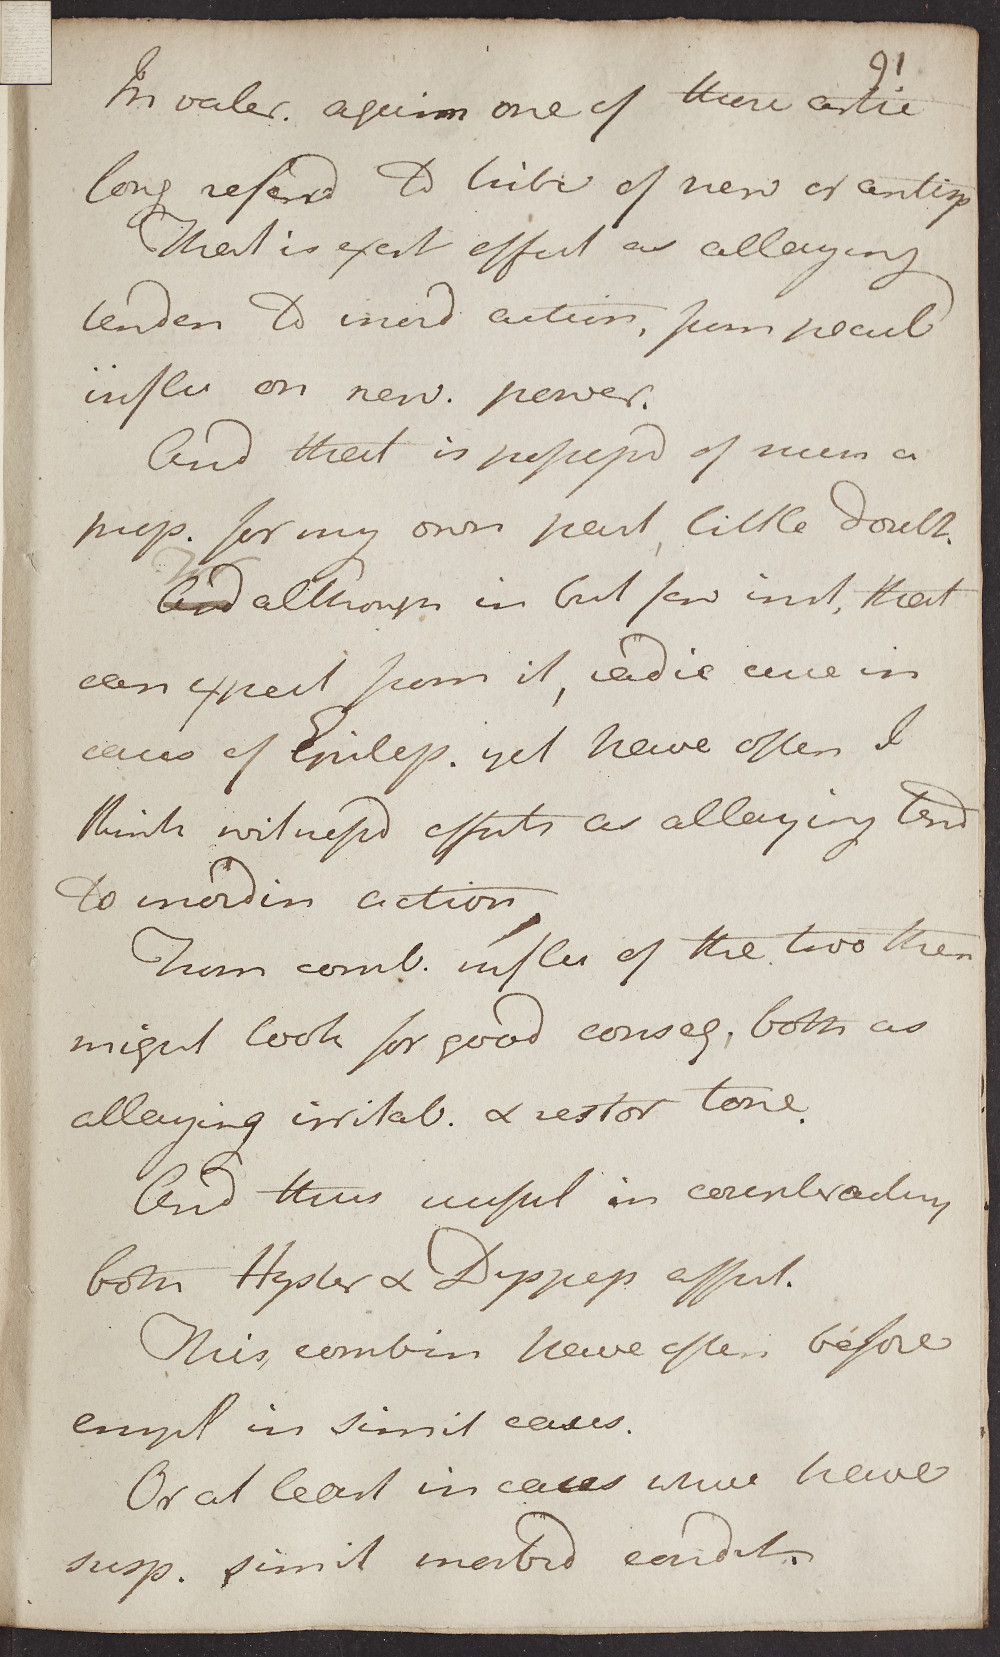 91
In valer. again one of those artic
long referrd to tribe of nerv or antisp
That is exert effect as allaying
tenden to inord action, from peculr
influ on nerv. power.
And that is possessd of such a
prop. for my own part, little doubt.
And although in but few inst, that
can expect from it, radic cure in
cases of Epilep. yet have often I
think witnessd effects as allaying tend
to inordin action
From comb. influ of the two then
might look for good conseq, both as
allaying irritab. & restor tone.
And thus usefull in counteracting
both Hyster & Dyspep affect.
This, combin have often before
empl in simil cases.
Or at least in cases where have
susp. simil morbid condit.